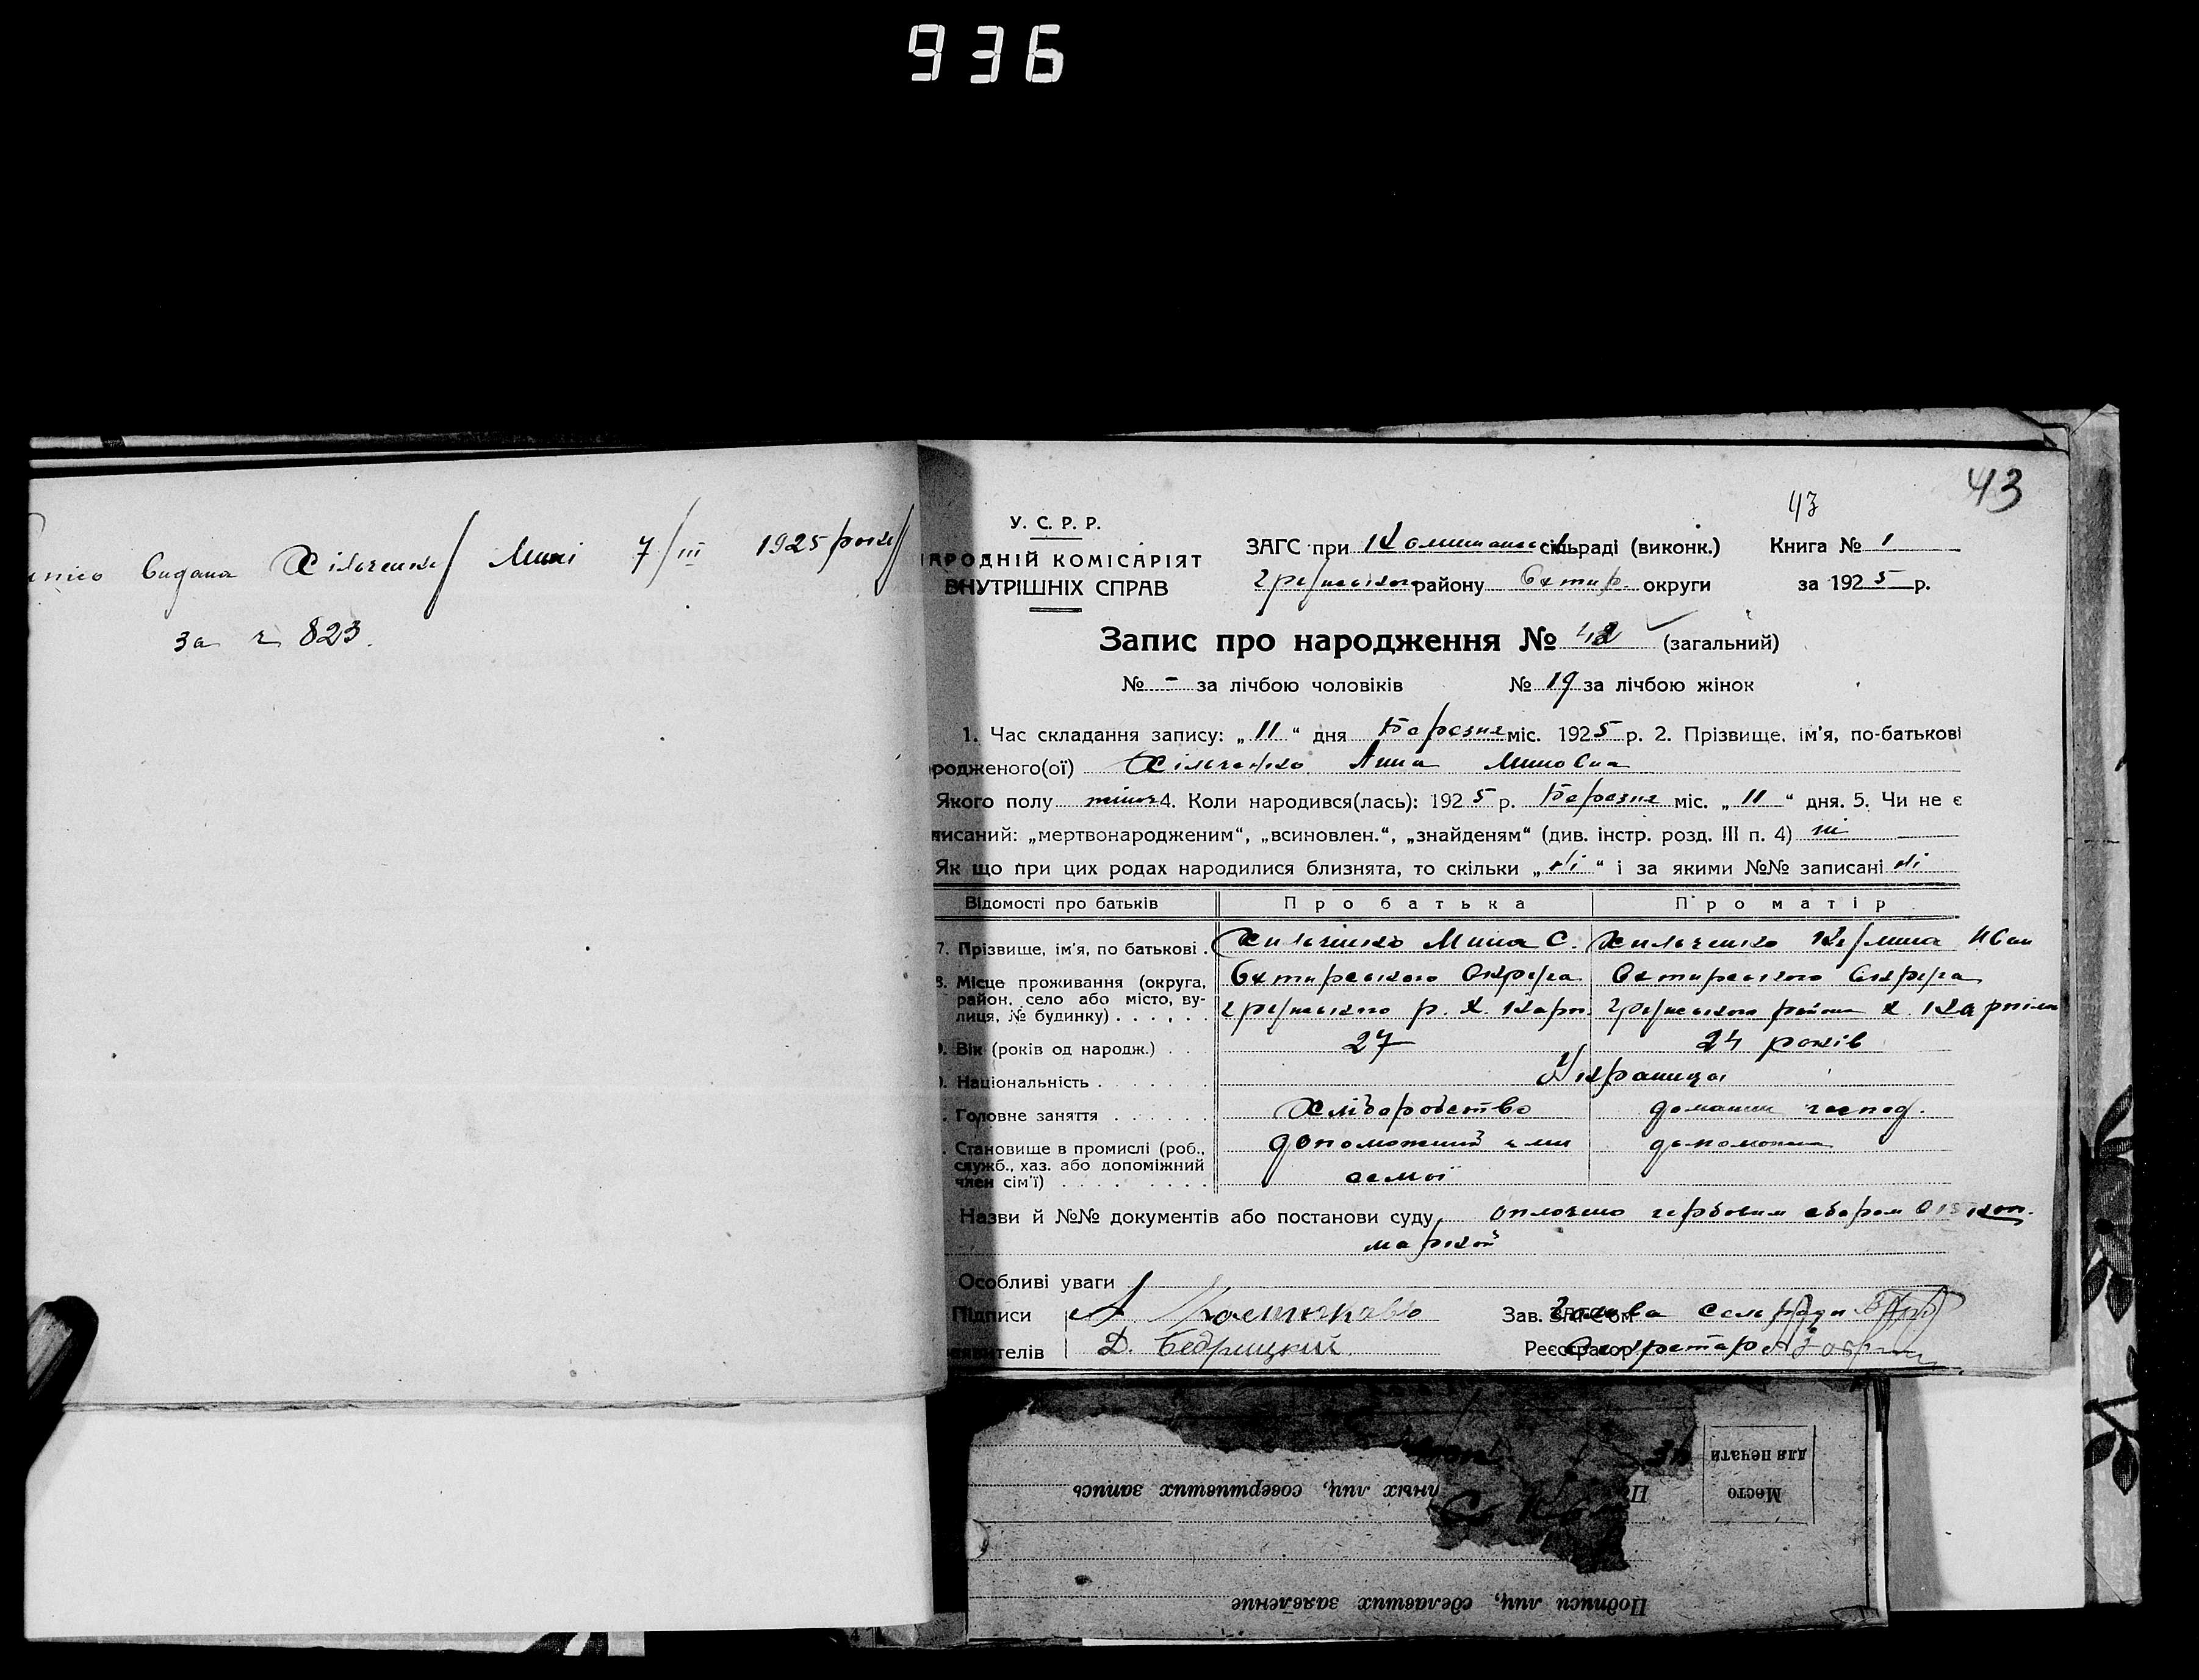 936
видана Хільченку Мині 7/III 1925 року
за ч 823.
43
43
У. С. Р. Р.
НАРОДНІЙ КОМІСАРІЯТ
ВНУТРІШНІХ СПРАВ
ЗАГС при сільраді (виконк.) Книга № 1
району Охтир. округи за 1925 р.
Запис про народження № 42 (загальний)
№ - за лічбою чоловіків № 19 за лічбою жінок
1. Час складання запису: „ 11 “ дня Березня міс. 1925 р. 2. Прізвище, ім'я, по-батькові
родженого(ої) Хільченко Анна Миновна
Якого полу жіноч 4. Коли народився(лась): 1925 р. Березня міс. „ 11 “ дня. 5. Чи не є
писаний: „мертвонародженим“, „всиновлен.“, „знайденям“ (див. інстр. розд. III п. 4) ні
Як що при цих родах народилися близнята, то скільки „ ні “ і за якими №№ записані ні
Відомості про батьків Про батька Про матір
7. Прізвище, ім'я, по батькові . Хильченко Мина С. Хильченко Иван
8. Місце проживання (округа, Охтирського Округа Охтирського Округа
район, село або місто, ву-
лиця, № будинку) . . . . . р. х. Карп. района х. Карпіл
9. Вік (років од народж.) . . 27 24 років
Національність . . . . . . . Українці
Головне заняття . . . . . . Хліборобство домашн господ.
Становище в промислі (роб., допоможний член допоможн
служб., хаз. або допоміжний
член сім'ї) . . . . . . . . . семої
Назви й №№ документів або постанови суду оплочено гербовим сбором 0 15 коп.
маркой
Особливі уваги
Підписи Зав. ЗАГС'ом Голова Сельради
Д. Бедрицкий Реєстратор Секретарь
Место
для печати
совершивших запись
Подписи лиц, сделавших заявление